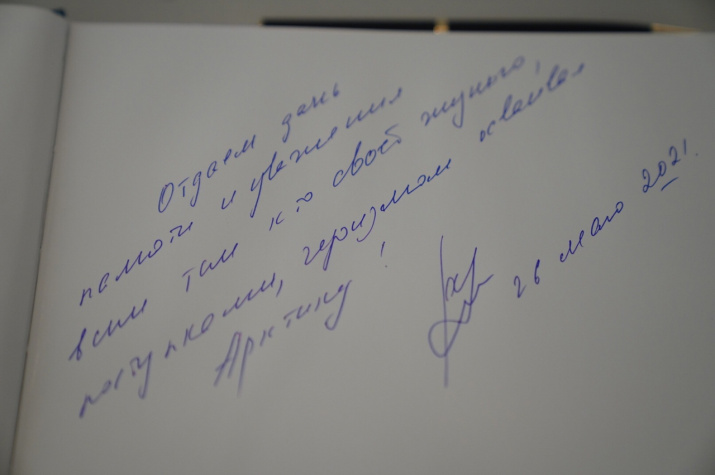 Отдаем дань
памяти и уважения
всем тем кто своей жизнью,
поступками, героизмом осваивал
Арктику!
26 мая 2021.